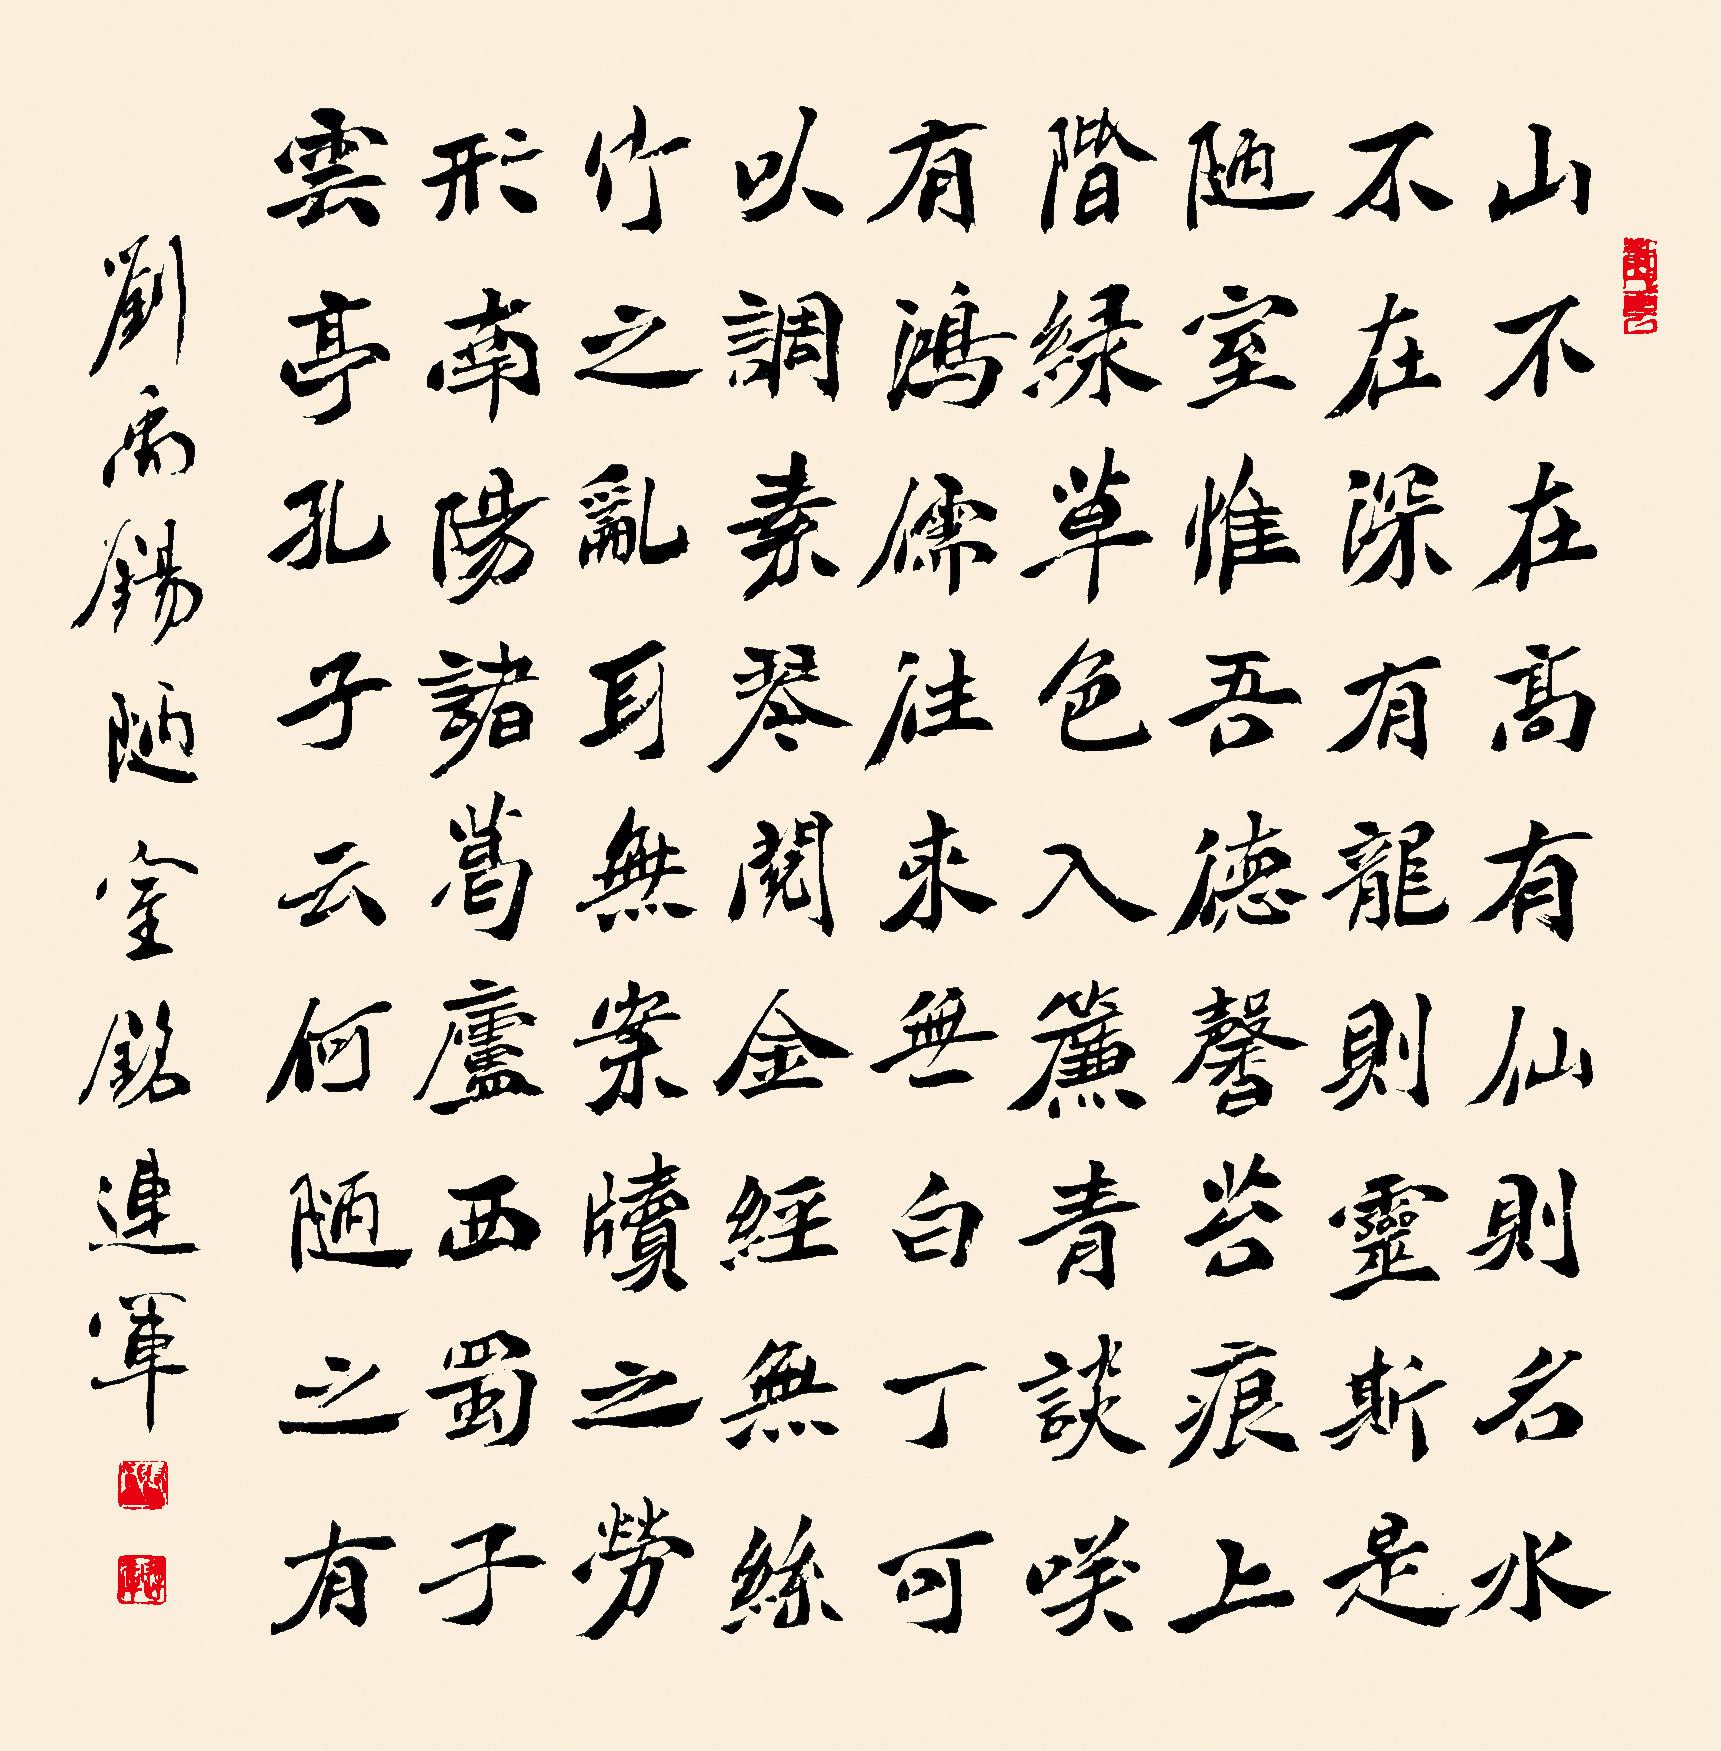 山不在高有仙則名水
不在深有龍則靈斯是
陋室惟吾德馨苔痕上
階緑草色入簾青談咲
有鴻儒往來無白丁可
以調素琴閱金經無絲
竹之亂耳無案牘之勞
形南陽諸葛廬西蜀子
雲亭孔子云何陋之有
劉禹錫陋室銘連軍